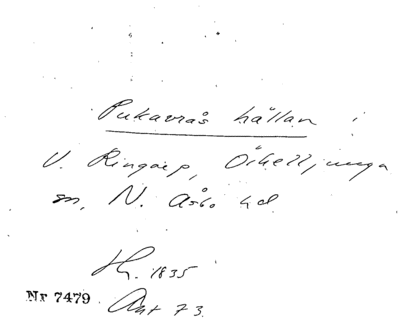 Pukavrås hällan i
V. Ringarp, Örkelljunga
sn, N. Åsbo hd
1835
Nr 7479
Ant 73.